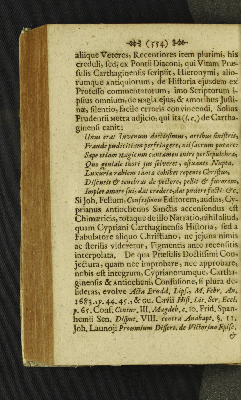 (534)
aliique Veteres, Recentiores item plurimi, his
creduli, sed, ex Pontii Diaconi, qui Vitam Præ-
sulis Carthaginensis scripsit, Hieronymi, alio-
rumque antiquiorum, de Historia ejusdem ex
Professo commentatorum, imo Scriptorum i-
psius omnium, de magia ejus, & amoribus Justi-
næ, silentio, facile erroris convincendi. Solius
Prudentii metra adjicio, qui ita (l. c.) de Cartha-
ginensi canit:
Unus erat Juvenum doctissimus, artibus sinistris,
Fraude pudicitiam perfringere, nil sacrum putare:
Sæpe etiam magicum cantamen inire per sepulchra,
Quo geniale thori jus solveret, æstuante Nupta.
Luxuriæ rabiem tantæ cohibet repente Christus,
Discutit & tenebras de pectore, pellit & furorem,
Implet amore sui, dat credere, dat pudere facti: &c,
Si Joh, Fellum, Confessionis Editorem, audias, Cy-
prianus Antiochenus Sanctis accensendus est
Chimæricis, totaque de illo Narratio, nihil aliud,
quam Cypriani Carthaginensis Historia, sed a
Fabulatore aliquo Christiano, ne jejuna nimis
ac sterilis videretur, Figmentis aneo recentitis
interpolata. De qua Præsulis Doctissimi Con-
jectura, quam nec improbare, nec approbare,
nobis est integrum, Cyprianorumque, Cartha-
ginensis & Antiocheni, Confessione, si plura de-
sideras, evolve Acta Erudd, Lips, M, Febr, An,
1683, p. 44. 45. & Gu. Cavii Hist, Lit, Scr. Eccl.
p. 65. Conf, Centur, III, Magdeb, c. 10. Frid, Span-
hemii Sen, Disput, VIII. contra Anabapt, §. 11.
Joh, Launoji Præmium Dissert, de Victorino Episc,
&